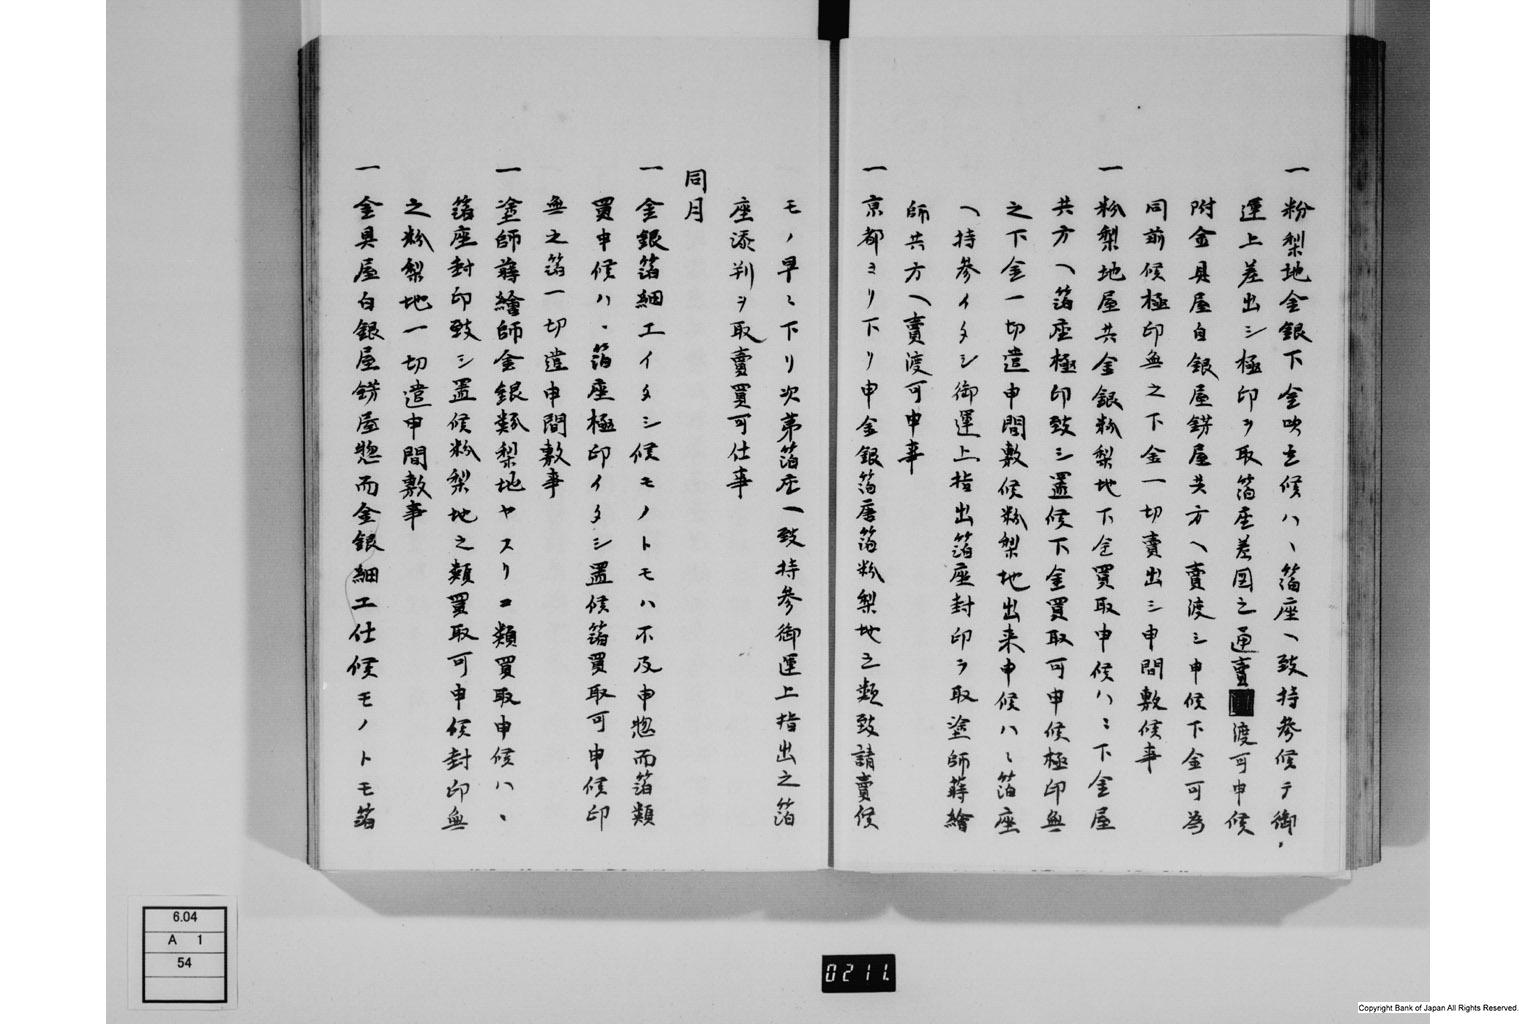 一粉梨地金銀下金吹立候ハヽ箔座ヘ致持参候テ御
運上差出シ極印ヲ取箔座差図之通賣渡可申候
附金具屋白銀屋錺屋共方ヘ賣渡シ申候下金可為
同前候極印無之下金一切賣出シ申間敷候事
一粉梨地屋共金銀粉梨地下金買取申候ハヽ下金屋
共方ヘ箔座極印致シ置候下金買取可申候極印無
之下金一切遣申間敷候粉梨地出来申候ハヽ箔座
ヘ持参イタシ御運上指出箔座封印ヲ取塗師蒔繪
師共方ヘ賣渡可申事
一京都ヨリ下リ申金銀箔唐箔粉梨地之類致請賣候
モノ早々下リ次第箔座ヘ致持参御運上指出之箔
座添判ヲ取賣買可仕事
同月
一金銀箔細工イタシ候モノトモハ不及申惣而箔類
買申候ハヽ箔座極印イタシ置候箔買取可申候印
無之箔一切遣申間敷事
一塗師蒔繪師金銀類梨地ヤスリコ類買取申候ハヽ
箔座封印致シ置候粉梨地之類買取可申候封印無
之粉梨地一切遣申間敷事
一金具屋白銀屋錺屋惣而金銀細工仕候モノトモ箔
6.04
A 1
54
0211.
Copyright Bank of Japan All Rights Reserved.